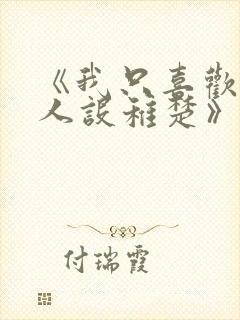 《我只喜歡
人設稚楚》
付瑞霞